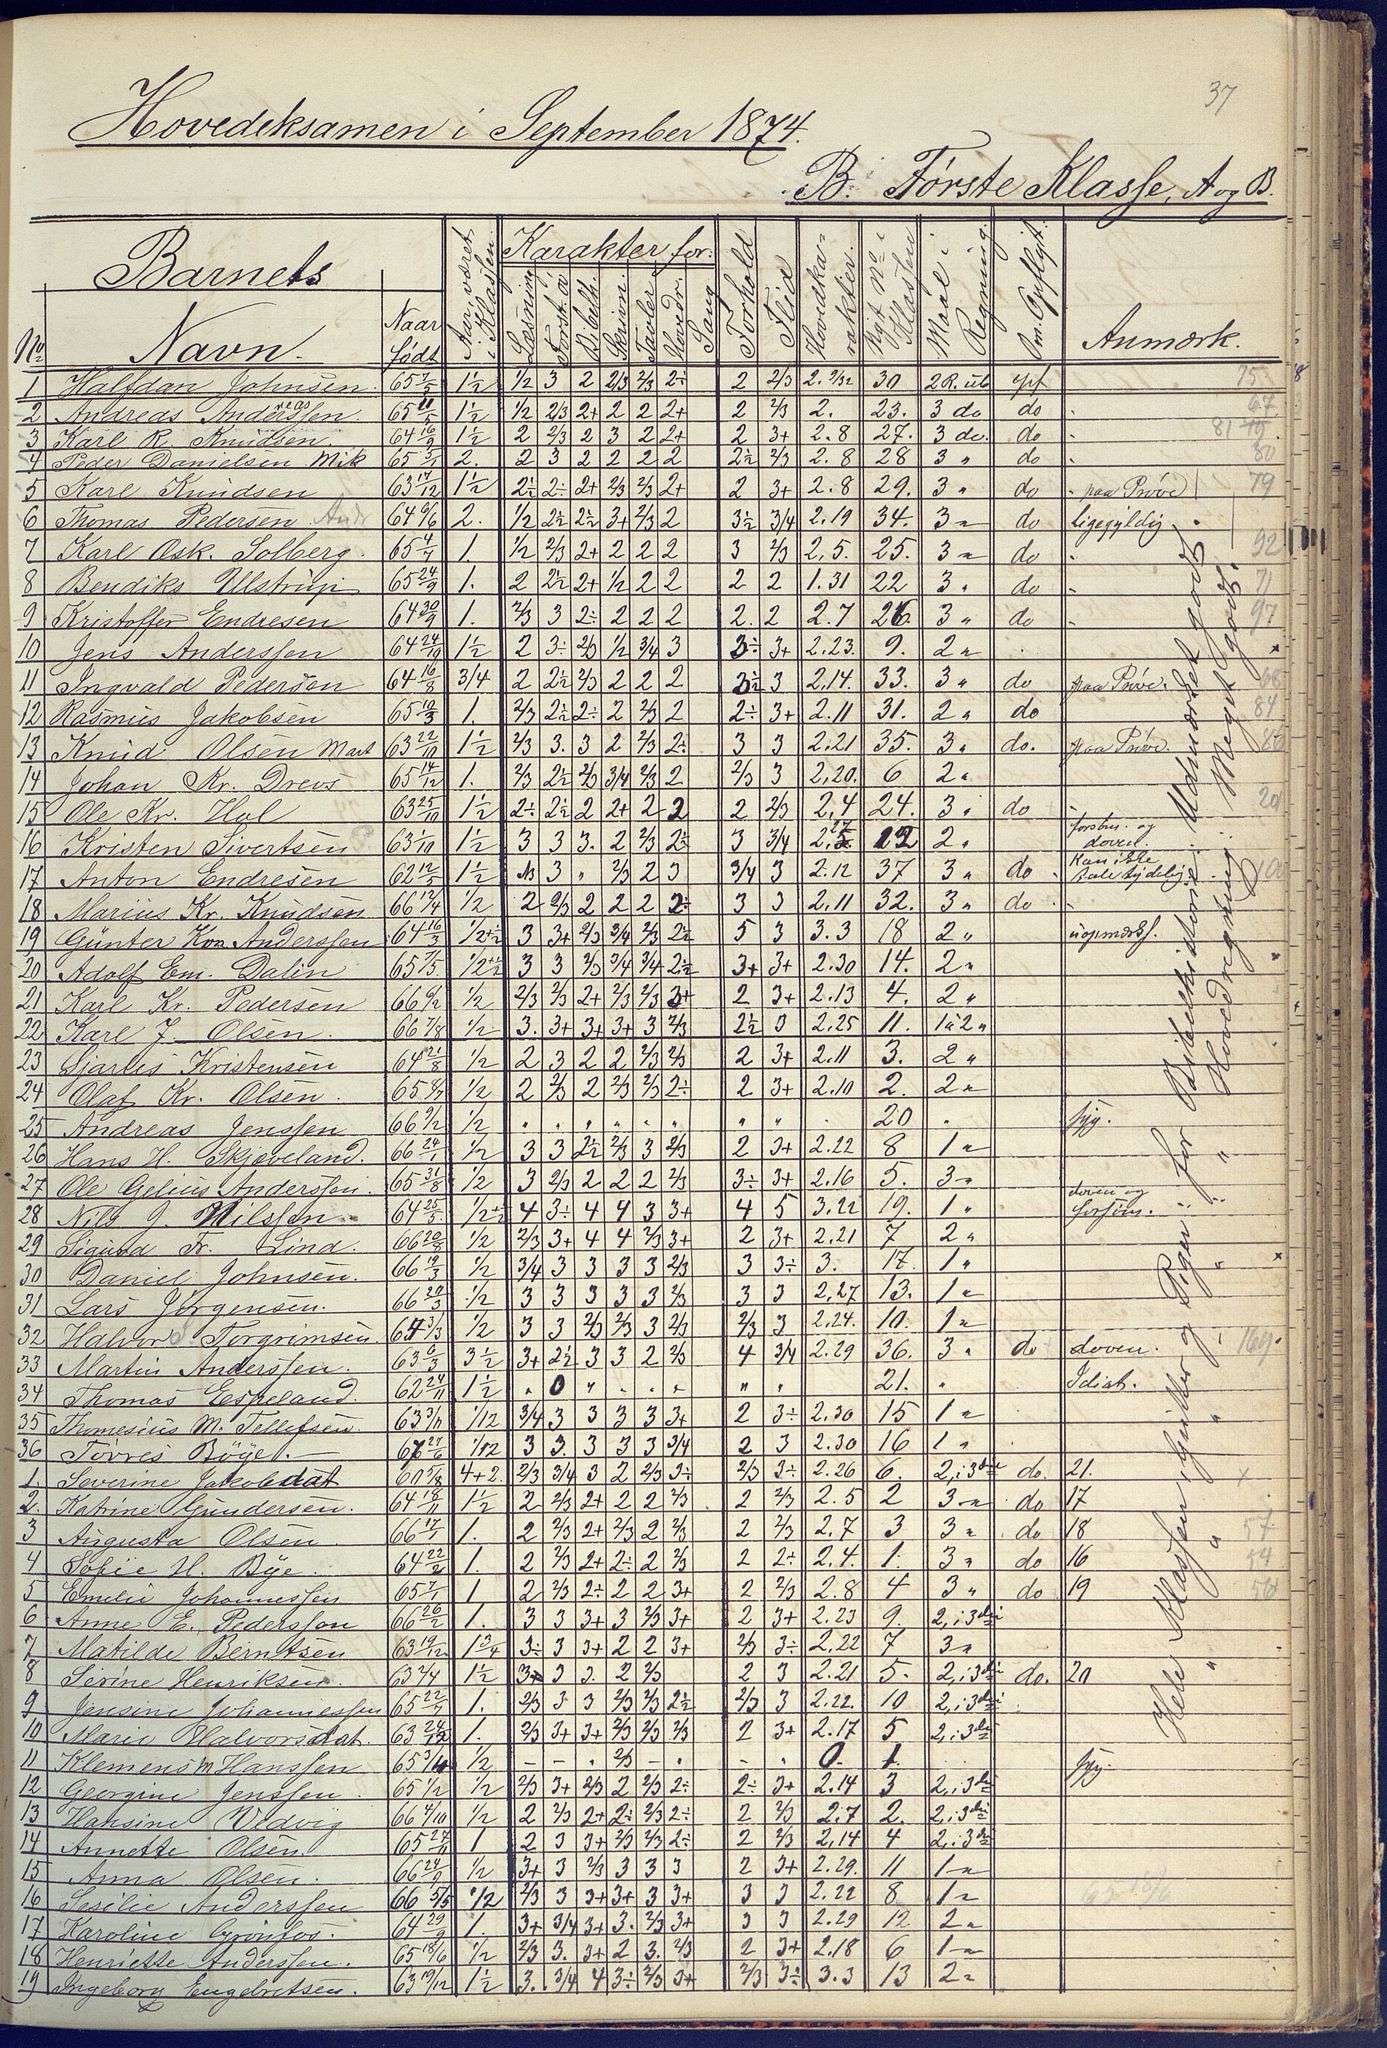 37
Hovedeksamen i September 1874.
B. Første Klasse, A og B.
No Barnets Navn. Naar født Aar været i Klassen. Karakter for: Læsning Forst. á Bibelh. Skrivn. Tavler Hovedr. Sang Forhold Flid Hovedka-rakter. Nyt No i Klassen Maal i Regning. Om Opflyt. Anmærk.
1 Halfdan Johnsen. 65 7/5 1½ 1/2 3 2 2/3 2/3 2÷ 2 2/3 2. 9/32 30 2 R. ub opf 75
2 Andreas Anderssen 65 11/5 1½ 1/2 2/3 2+ 2 2 2+ 2 2/3 2. 23. 3 do do 67
3 Karl R. Knudsen 64 16/9 1½ 2 2/3 2 3 2 2+ 2 3+ 2.8 27. 3 do. do 81
4 Peder Danielsen Mik 65 5/1 2. 2 3 2 2 2 2 2½ 2/3 2.8 28 3 " do 80
5 Karl Knudsen 63 17/12 1½ 2½ 2÷ 2+ 2/3 2/3 2+ 2 3+ 2.8 29. 3 " do paa Prøve 79
6 Thomas Pedersen 64 6/6 2. 1/2 2½ 2½ 3+ 2/3 2 3½ 3/4 2.19 34. 3 " do ligegyldig
7 Karl Osk. Solberg. 65 4/7 1. 1/2 2/3 2+ 2 2 2 3 2/3 2.5. 25. 3 " do 92
8 Bendiks Ulstrup 65 24/9 1. 2 2½ 2+ 1/2 2 2 2 2 1.31 22 3 " do 71
9 Kristoffer Endresen 64 30/9 1. 2/3 3 2÷ 2 2 2 2. 2 2.7 26. 3 " do 97
10 Jens Anderssen 64 24/10 1½ 2 3÷ 2/3 1/2 3/4 3 3÷ 3+ 2.23. 9. 2 "
11 Ingvald Pedersen 64 16/8 3/4 2 2½ 2/3 2 2 2 3½ 3 2.14. 33. 3 " do paa Prøve. 68
12 Rasmus Jakobsen 65 10/3 1. 2/3 2½ 2÷ 2 2/3 2 2÷ 3+ 2.11 31. 2 " do 84
13 Knud Olsen Mart 63 22/10 1½ 2/3 3. 3 2 2/3 2÷ 3 3 2.21 35. 3 " do. paa Prøve.
14 Johan Kr. Drevs 65 14/12 1. 2/3 2½ 2/3 3/4 2/3 2 2/3 3 2.20. 6 2 "
15 Ole Kr. Hol 63 25/10 1½ 2÷ 2½ 2 2+ 2 2 2 2/3 2.4 24. 3 " do 20
16 Kristen Sivertsen 63 1/10 1½ 3 3 3. 2 2/3 2½ 3 3/4 2. 12 2 " forsøm. og doven.
17 Anton Endresen 62 12/5 1½ 3 " 2/3 2 3 3/4 3 2.12 37 3 " do Kan ikke tale tydelig. 100
18 Marius Kr. Knudsen 66 12/4 1/2 2 2/3 2 2 2 2÷ 3 3 2.11 32. 3 " do
19 Günter Kon Anderssen 64 16/3 1/2+½ 3 3+ 2/3 3/4 2/3 2½ 5 3 3.3 18 2 " uopmærks.
20 Adolf Em. Dalin 65 7/5. 1/2+½ 3 3 2/3 3/4 3/4 2½ 3+ 3+ 2.30 14. 2 "
21 Karl Kr. Pedersen 66 6/2 1/2 2/3 2/3 2+ 2/3 2/3 3+ 2 3+ 2.13 4. 2 "
22 Karl J. Olsen. 66 7/8 1/2 3. 3+ 3+ 3+ 3 2/3 2½ 3 2.25 11. 1 à 2 "
23 Sjartis Kristensen 64 21/8 1/2 2 3 2 2 2/3 2/3 2 3+ 2.11 3. 2 "
24 Olaf Kr. Olsen. 65 8/7 1/2 2 2/3 2 2/3 2/3 2÷ 2 3+ 2.10 2. 2 "
25 Andreas Jenssen 66 9/2 1/2 " " " " " " " " 20 " syg!
26 Hans H. Skjæveland. 66 24/1 1/2 3 3 2½ 2/3 3 2/3 2 3+ 2.22 8 1 "
27 Ole Gelius Anderssen. 65 31/8 1/2 3 2/3 2 2 2 2/3 3÷ 3+ 2.16 5. 3 "
28 Nils J. Nilssen. 64 25/5 1/2+½ 4 3÷ 4 4 3 3+ 4 5 3.22 19. 1 " doven og forsøm.
29 Sigurd Fr. Lind. 66 20/8 1/2 2/3 3+ 4 4 2/3 3+ 2 3+ 2.21 7 2 "
30 Daniel Johnsen. 66 19/3 1/2 3/4 3 3 3 3 2/3 3 3÷ 3. 17. 1 "
31 Lars Jørgensen. 66 20/3 1/2 3 3 3 3 3 2/3 3 3 2.27 13. 1 "
32 Halvor Torgrimsen 64 3/3 1/2 3 3 2/3 2/3 3 2/3 2/3 3 2.24. 10. 1 "
33 Martin Anderssen. 63 6/3 3½ 3+ 2½ 3 3 2 2/3 4 3/4 2.29 36. 3 " do doven. 169.
34 Thomas Espeland. 62 24/11 1½ " 0 " " " " " " 21. " Idiot.
35 Thomesius M. Tellefsen. 63 3/11 1/12 3/4 3 3 3 3 3+ 2 3÷ 2.30 15 1 "
36 Tørres Bøye. 67 27/6 1/12 3 3. 3 3 3 3/4 2 3 2.30 16 1 "
1. Severine Jakobsdat 60 5/8 4+2. 2/3 3/4 3 2 2/3 3÷ 2/3 3÷ 2.26 6. 2, i 3die do. 21.
2. Katrine Gundersen. 64 18/11 1½ 2 2/3 2+ 2 2 2/3 2 2/3 2.5 2 3 " do 17
3 Augusta Olsen 66 17/1 1. 2 2/3 2+ 2/3 2 2/3 2 2/3 2.7 3 3 " do 18 57
4 Sofie H. Bye. 64 22/2 1. 2 2/3 2+ 2÷ 2 2/3 2 2÷ 2.4. 1. 3 " do 16 54
5 Emelie Johannessen 65 7/1 1 2 2/3 2÷ 2 2 3+ 2 2/3 2.8 4 3 " do 19 50
6 Anne E. Pederssen 66 26/2 1. 3 3 3+ 3 2/3 3+ 2 3+ 2.23 9. 2, i 3die
7 Matilde Berntsen 63 19/12 1¾ 3÷ 3 3+ 2 2 3+ 2/3 3÷ 2.22 7. 3 "
8 Serine Henriksen 63 2/4 1½ 3+ 3 3. 2 2/3 2 3 2.21 5. 2, i 3die do. 20
9 Jensine Johannessen 65 22/7 1. 2/3 3 3 2/3 2/3 2½ 2/3 3 2.22. 10 2, i 3die
10 Marie Halvorsdat. 63 24/12 1. 2/3 3+ 3+ 2/3 2/3 2/3 2 3+ 2.17 5 2, i 3die
11 Klemens M Hanssen 65 3/4 1/2 – – . 2/3 – " . . 0. 1. syg.
12 Georgine Jenssen. 65 1/2 1/2 2/3 3+ 2/3 2 2/3 2÷ 2÷ 3+ 2.14 3 2, i 3die
13 Hansine Vedvig 66 4/10 1/2 2 2/3 2+ 2÷ 2/3 2÷ 2 2/3 2.7 2. 2, i 3die
14 Annette Olsen. 65 24/11 1 2 3 3+ 2/3 2/3 2÷ 2 2/3 2.14 4 2. i 3die
15 Anna Olsen. 66 24/9 1/2 3+ 3 2/3 3 3 3 2 3+ 2.29. 11 1 "
16 Sesilie Anderssen 66 5/5 1/2 2/3 3 3+ 3+ 3 3+ 3 3 2.22 8 1 "
17 Karoline Grønfos. 64 29/9 1. 3+ 3/4 3+ 3. 2/3 3+ 3 3 2.29 12 2 "
18 Henriette Anderssen. 65 18/6 1/2 2/3 3. 3+ 2 3. 2/3 2 3+ 2.18 6 1 "
19 Ingeborg Engebretsen. 63 19/12 1½ 3. 3/4 4 3÷ 2/3 3+ 2/3 3÷ 3.3 13 2 "
Hele Klassen, Gutter og Piger: for Bibelhistorie: Udmærket godt.
" " " " " " Hovedregning: Meget godt.